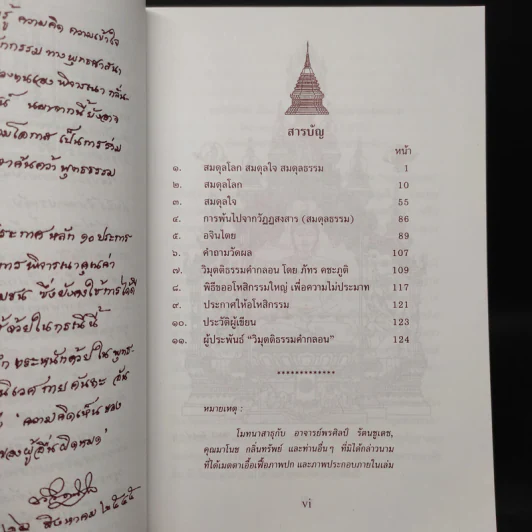 รู้ ความคิด ความเข้าใจ
กรรม ทางพุทธศาสนา
พิจารณา กลั่น-
นอกจากนี้ยังอาจ
โอกาส เป็นการร่วม
ค้นคว้า พุทธธรรม
ประกาศหลัก ๑๐ ประการ
การพิจารณาคุณค่า
ซึ่งยังคงใช้การได้ดี
ด้วยในกรณีนี้
ตระหนักด้วยในพุทธ-
"ความคิดเห็นของ
ของผู้อื่นผิดหมด"
สิงหาคม ๒๕๔๕
สารบัญ
หน้า
๑. สมดุลโลก สมดุลใจ สมดุลธรรม 1
๒. สมดุลโลก 10
๓. สมดุลใจ 55
๔. การพ้นไปจากวัฏฏสงสาร (สมดุลธรรม) 86
๕. อจินไตย 89
๖. คำถามวัดผล 107
๗. วิมุตติธรรมคำกลอน โดย ภัทร คชะภูติ 109
๘. พิธีขออโหสิกรรมใหญ่ เพื่อความไม่ประมาท 117
๙. ประกาศให้อโหสิกรรม 121
๑๐. ประวัติผู้เขียน 123
๑๑. ผู้ประพันธ์ "วิมุตติธรรมคำกลอน" 124
หมายเหตุ :
โมทนาสาธุกับ อาจารย์พรศิลป์ รัตนชูเดช,
คุณมาโนช กลิ่นทรัพย์ และท่านอื่นๆ ที่มิได้กล่าวนาม
ที่ได้เมตตาเอื้อเฟื้อภาพปก และภาพประกอบภายในเล่ม
vi